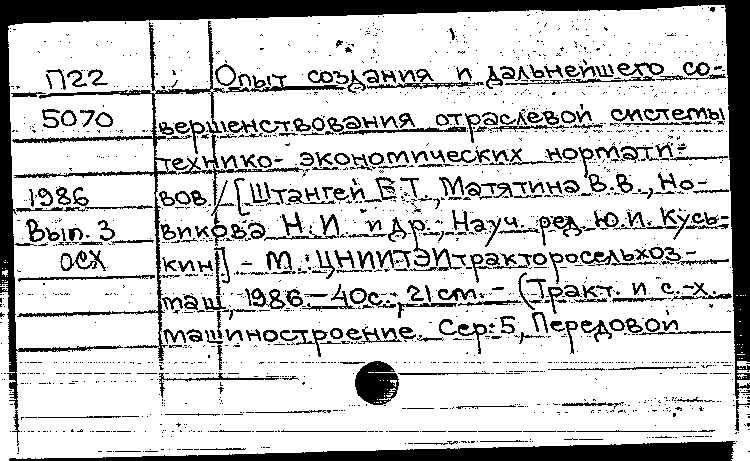 П22 Опыт создания и дальнейшего со-
5070 вершенствования отраслевой системы
технико-экономических нормати-
1986 вов / [Штангей Б.Т., Матятина В.В., Но-
Вып. 3 викова Н.И. и др.; Науч. ред. Ю.И. Кусь-
осх кин] - М.: ЦНИИТЭИтракторосельхоз-
маш, 1986. - 40с.; 21 cm. - (Тракт. и с.-х.
машиностроение. Сер. 5, Передовой